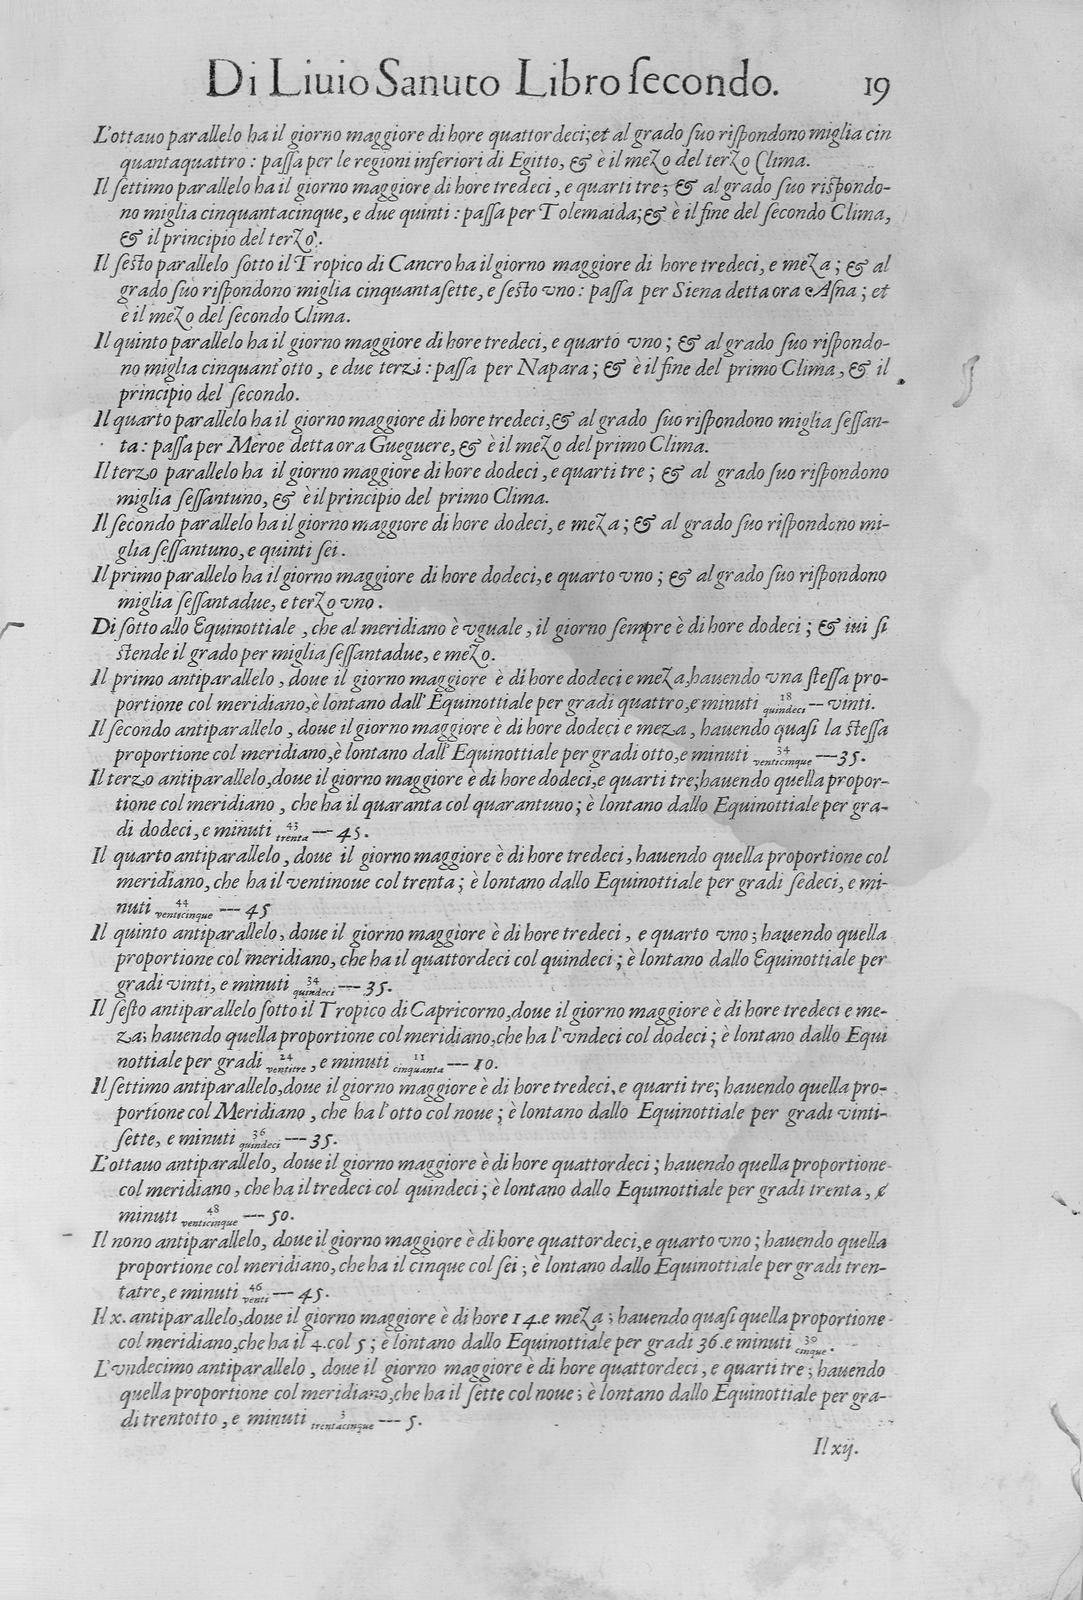 Di Liuio Sanuto Libro ſecondo. 19
L'ottauo parallelo ha il giorno maggiore di hore quattordeci; et al grado ſuo riſpondono miglia cin
quantaquattro : paſſa per le regioni inferiori di Egitto, & è il mezo del terzo Clima.
Il ſettimo parallelo ha il giorno maggiore di hore tredeci, e quarti tre; & al grado ſuo riſpondo-
no miglia cinquantacinque, e due quinti : paſſa per Tolemaida; & è il fine del ſecondo Clima,
& il principio del terzo.
Il ſeſto parallelo ſotto il Tropico di Cancro ha il giorno maggiore di hore tredeci, e meza ; & al
grado ſuo riſpondono miglia cinquantaſette, e ſeſto vno : paſſa per Siena detta ora Aſna ; et
è il mezo del ſecondo Clima.
Il quinto parallelo ha il giorno maggiore di hore tredeci, e quarto vno ; & al grado ſuo riſpondo-
no miglia cinquant'otto, e due terzi : paſſa per Napara ; & è il fine del primo Clima, & il
principio del ſecondo.
Il quarto parallelo ha il giorno maggiore di hore tredeci, & al grado ſuo riſpondono miglia ſeſſan-
ta : paſſa per Meroe detta ora Gueguere, & è il mezo del primo Clima.
Il terzo parallelo ha il giorno maggiore di hore dodeci, e quarti tre ; & al grado ſuo riſpondono
miglia ſeſſantuno, & è il principio del primo Clima.
Il ſecondo parallelo ha il giorno maggiore di hore dodeci, e meza ; & al grado ſuo riſpondono mi-
glia ſeſſantuno, e quinti ſei.
Il primo parallelo ha il giorno maggiore di hore dodeci, e quarto vno ; & al grado ſuo riſpondono
miglia ſeſſantadue, e terzo vno.
Di ſotto allo Equinottiale, che al meridiano è vguale, il giorno ſempre è di hore dodeci ; & iui ſi
ſtende il grado per miglia ſeſſantadue, e mezo.
Il primo antiparallelo, doue il giorno maggiore è di hore dodeci e meza, hauendo vna ſteſſa pro-
portione col meridiano, è lontano dall'Equinottiale per gradi quattro, e minuti 18 quindeci — vinti.
Il ſecondo antiparallelo, doue il giorno maggiore è di hore dodeci e meza, hauendo quaſi la ſteſſa
proportione col meridiano, è lontano dall'Equinottiale per gradi otto, e minuti 34 venticinque — 35.
Il terzo antiparallelo, doue il giorno maggiore è di hore dodeci, e quarti tre; hauendo quella propor-
tione col meridiano, che ha il quaranta col quarantuno ; è lontano dallo Equinottiale per gra-
di dodeci, e minuti 43 trenta — 45.
Il quarto antiparallelo, doue il giorno maggiore è di hore tredeci, hauendo quella proportione col
meridiano, che ha il ventinoue col trenta ; è lontano dallo Equinottiale per gradi ſedeci, e mi-
nuti 44 venticinque — 45
Il quinto antiparallelo, doue il giorno maggiore è di hore tredeci, e quarto vno ; hauendo quella
proportione col meridiano, che ha il quattordeci col quindeci ; è lontano dallo Equinottiale per
gradi vinti, e minuti 34 quindeci — 35.
Il ſeſto antiparallelo ſotto il Tropico di Capricorno, doue il giorno maggiore è di hore tredeci e me-
za; hauendo quella proportione col meridiano, che ha l'vndeci col dodeci ; è lontano dallo Equi
nottiale per gradi 24 ventitre, e minuti 11 cinquanta — 10.
Il ſettimo antiparallelo, doue il giorno maggiore è di hore tredeci, e quarti tre; hauendo quella pro-
portione col Meridiano, che ha l'otto col noue ; è lontano dallo Equinottiale per gradi vinti-
ſette, e minuti 36 quindeci — 35.
L'ottauo antiparallelo, doue il giorno maggiore è di hore quattordeci ; hauendo quella proportione
col meridiano, che ha il tredeci col quindeci ; è lontano dallo Equinottiale per gradi trenta, e
minuti 48 venticinque — 50.
Il nono antiparallelo, doue il giorno maggiore è di hore quattordeci, e quarto vno ; hauendo quella
proportione col meridiano, che ha il cinque col ſei ; è lontano dallo Equinottiale per gradi tren-
tatre, e minuti 46 venti — 45.
Il x. antiparallelo, doue il giorno maggiore è di hore 14. e meza ; hauendo quaſi quella proportione
col meridiano, che ha il 4. col 5 ; è lontano dallo Equinottiale per gradi 36. e minuti 30 cinque.
L'vndecimo antiparallelo, doue il giorno maggiore è di hore quattordeci, e quarti tre ; hauendo
quella proportione col meridiano, che ha il ſette col noue ; è lontano dallo Equinottiale per gra-
di trentotto, e minuti 3 trentacinque — 5.
Il xij.